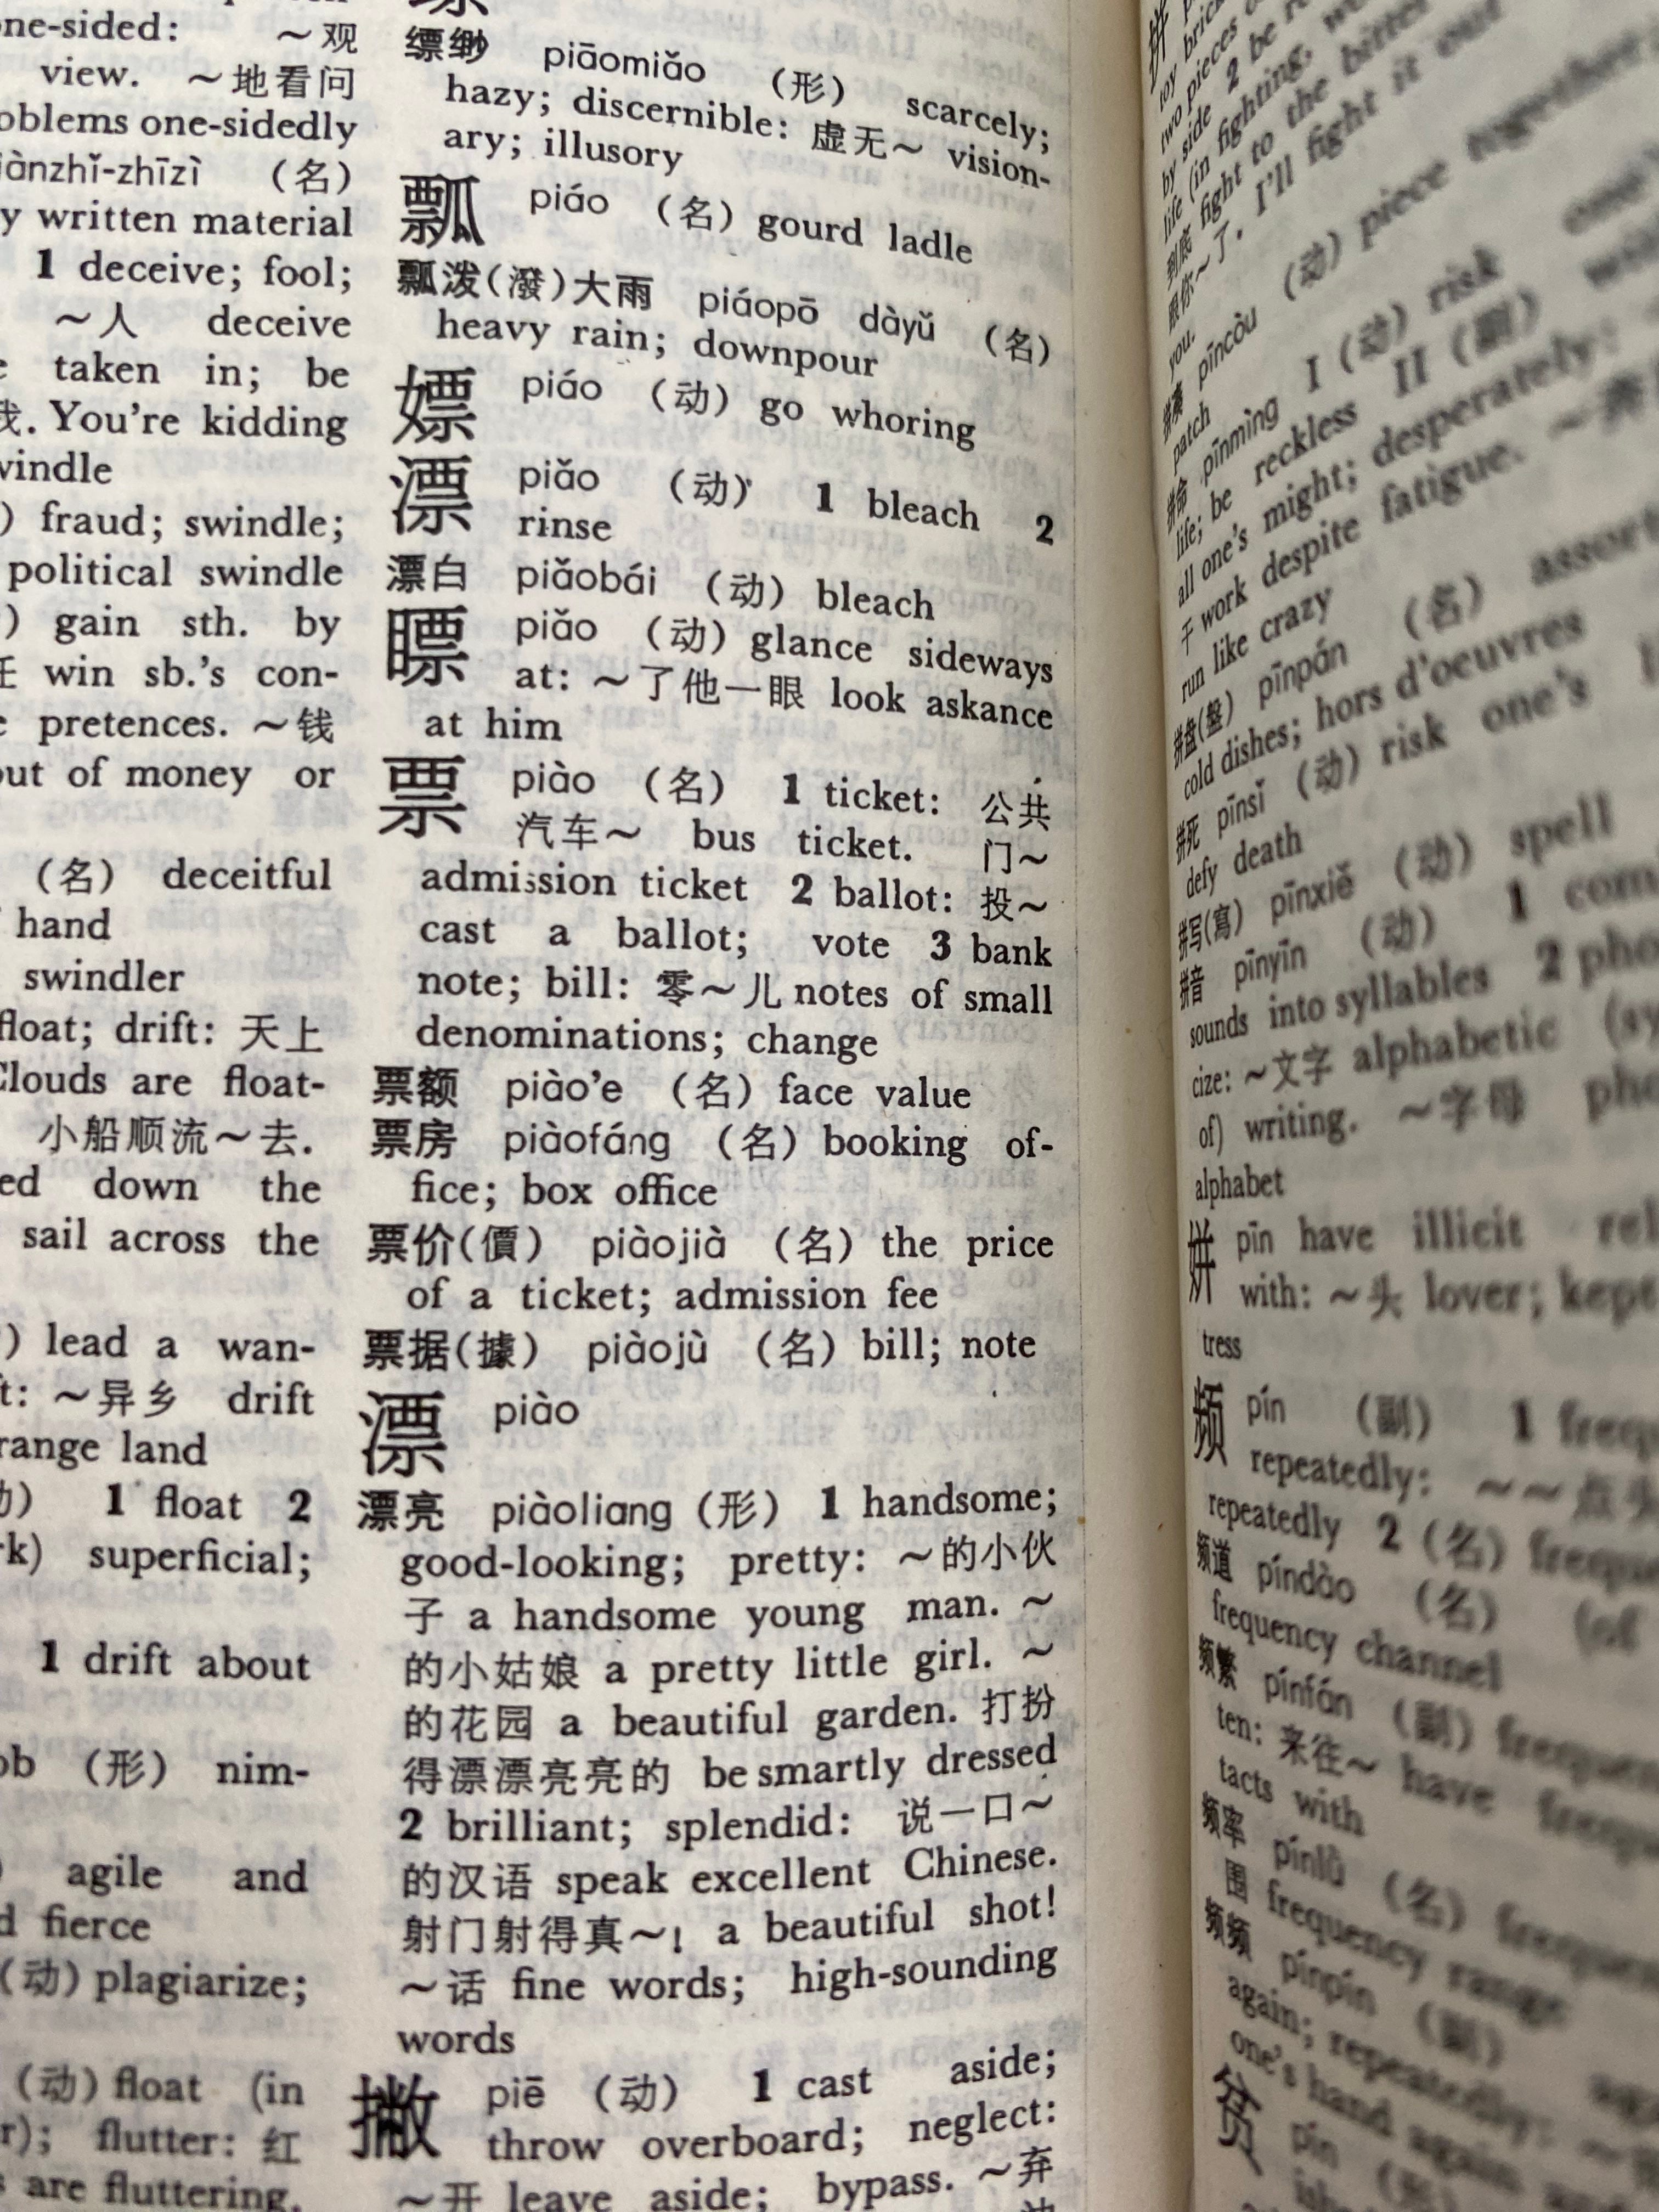 ne-sided: ～观
view. ～地看问
oblems one-sidedly
iànzhǐ-zhīzì （名）
y written material
1 deceive; fool;
～人 deceive
taken in; be
我. You're kidding
windle
) fraud; swindle;
political swindle
) gain sth. by
任 win sb.'s con-
pretences. ～钱
out of money or
（名） deceitful
hand
swindler
float; drift: 天上
Clouds are float-
小船顺流～去.
ed down the
sail across the
) lead a wan-
t: ～异乡 drift
range land
动） 1 float 2
rk) superficial;
1 drift about
ob （形） nim-
) agile and
d fierce
（动）plagiarize;
（动）float (in
r); flutter: 红
s are fluttering.
缥缈 piāomiǎo （形） scarcely;
hazy; discernible: 虚无～ vision-
ary; illusory
瓢 piáo （名）gourd ladle
瓢泼(潑)大雨 piáopō dàyǔ （名）
heavy rain; downpour
嫖 piáo （动）go whoring
漂 piǎo （动） 1 bleach 2
rinse
漂白 piǎobái （动）bleach
瞟 piǎo （动）glance sideways
at: ～了他一眼 look askance
at him
票 piào （名） 1 ticket: 公共
汽车～ bus ticket. 门～
admission ticket 2 ballot: 投～
cast a ballot; vote 3 bank
note; bill: 零～儿 notes of small
denominations; change
票额 piào'e （名）face value
票房 piàofáng （名）booking of-
fice; box office
票价(價） piàojià （名）the price
of a ticket; admission fee
票据(據） piàojù （名）bill; note
漂 piào
漂亮 piàoliang（形）1 handsome;
good-looking; pretty: ～的小伙
子 a handsome young man. ～
的小姑娘 a pretty little girl. ～
的花园 a beautiful garden. 打扮
得漂漂亮亮的 be smartly dressed
2 brilliant; splendid: 说一口～
的汉语 speak excellent Chinese.
射门射得真～! a beautiful shot!
～话 fine words; high-sounding
words
撇 piē （动） 1 cast aside;
throw overboard; neglect:
～开 leave aside; bypass. ～弃
two pieces
by side 2 be
life (in fighting, 
到底 fight to the bitter
跟你～了. I'll fight it out
you.
拼凑 pīncòu （动）piece together
patch
拼命 pīnmìng I（动）risk one's
life; be reckless II（副）
all one's might; desperately:
干 work despite fatigue. ～奔
run like crazy
拼盘(盤) pīnpán （名） assort
cold dishes; hors d'oeuvres
拼死 pīnsǐ （动）risk one's
defy death
拼写(寫) pīnxiě （动）spell
拼音 pīnyīn （动） 1 com
sounds into syllables 2 pho
cize: ～文字 alphabetic (sy
of) writing. ～字母 pho
alphabet
姘 pīn have illicit rel
with: ～头 lover; kept
tress
频 pín （副） 1 frequ
repeatedly: ～～点头
repeatedly 2（名）frequ
频道 píndào （名） (of
frequency channel
频繁 pínfán （副）frequen
ten: 来往～ have frequ
tacts with
频率 pínlǜ （名）frequen
围 frequency range
频频 pínpín （副）
again; repeatedly:
one's hand again
贫 pín